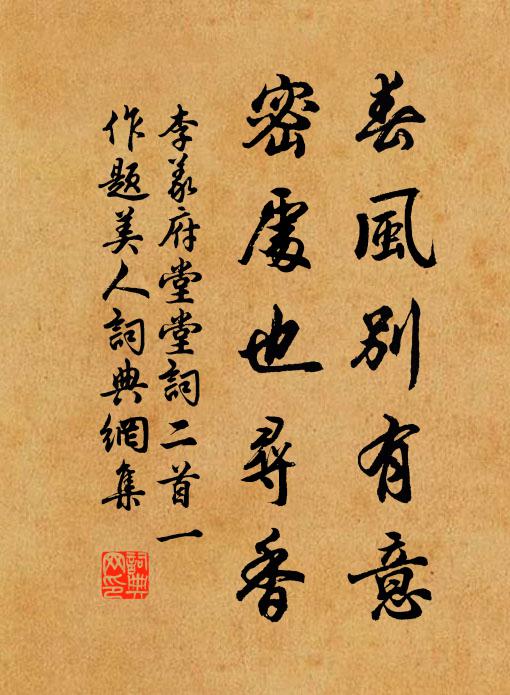 春風別有意
密處也尋香
李義府堂堂詞二首一
作題美人詞典網集
詞典
网印